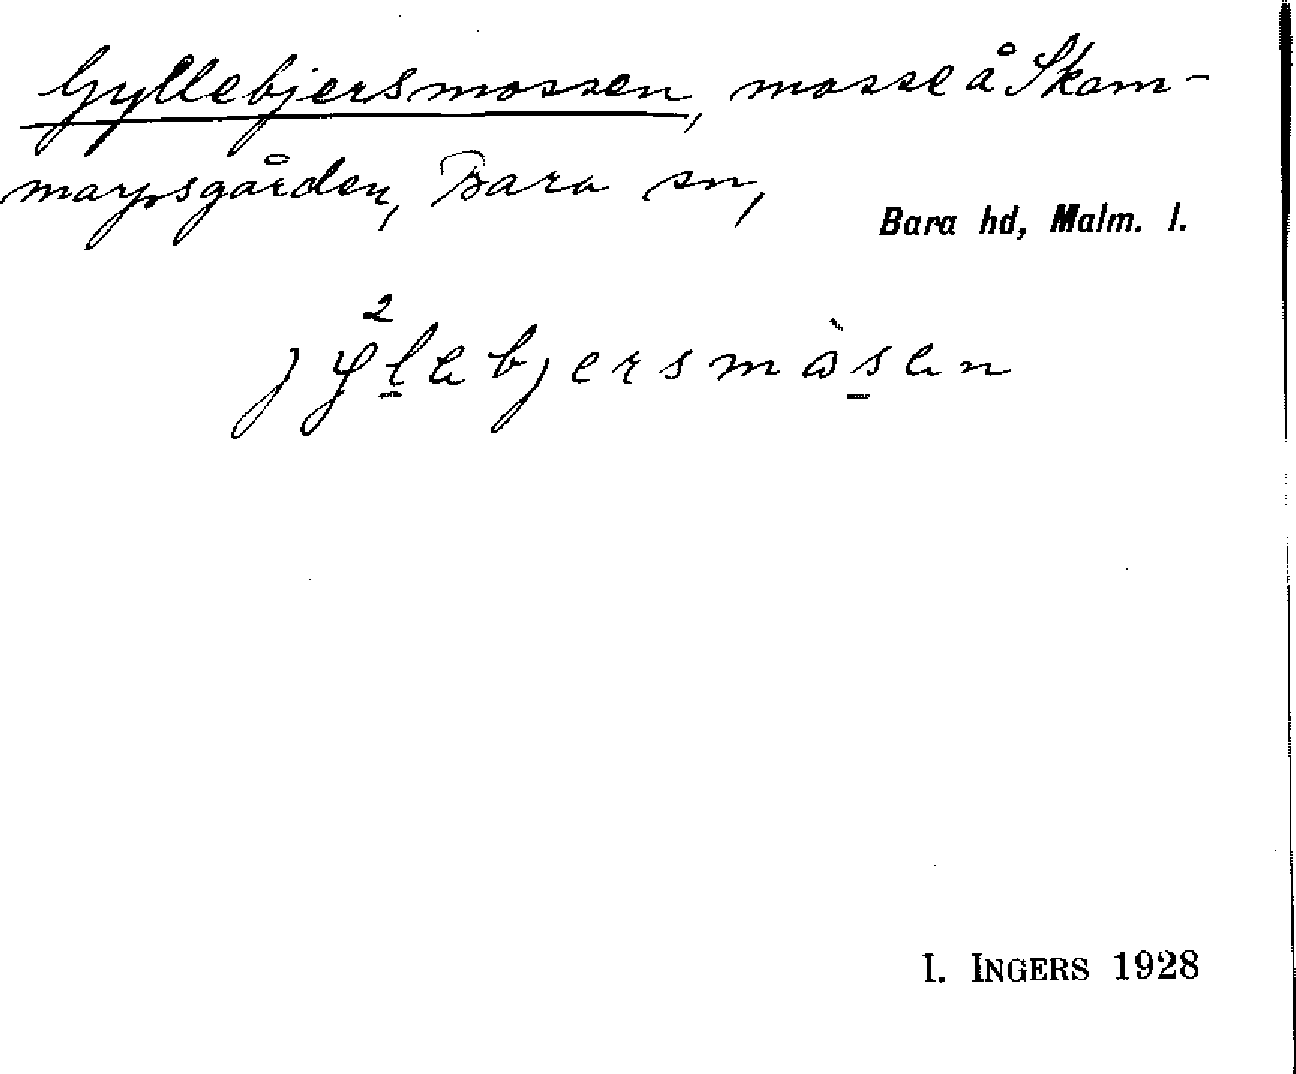 Gyllebjersmossen, mosse å Skam-
marpsgården, Bara sn,
Bara hd, Malm. l.
jy²l̲ebjersmɔ̀s̲en
I. INGERS 1928